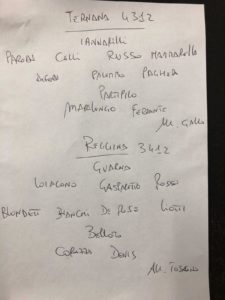 TERNANA 4312
IANNARILLI
PARODI CELLI RUSSO MAMMARELLA
PALUMBO PAGHERA
PARTIPILO
MARILUNGO FERRANTE
All. GALLO
REGGINA 3412
GUARNA
LOIACONO GASPARETTO ROSSI
BLONDETT BIANCHI DE ROSE LIOTTI
BELLOMO
CORAZZA DENIS
All. TOSCANO